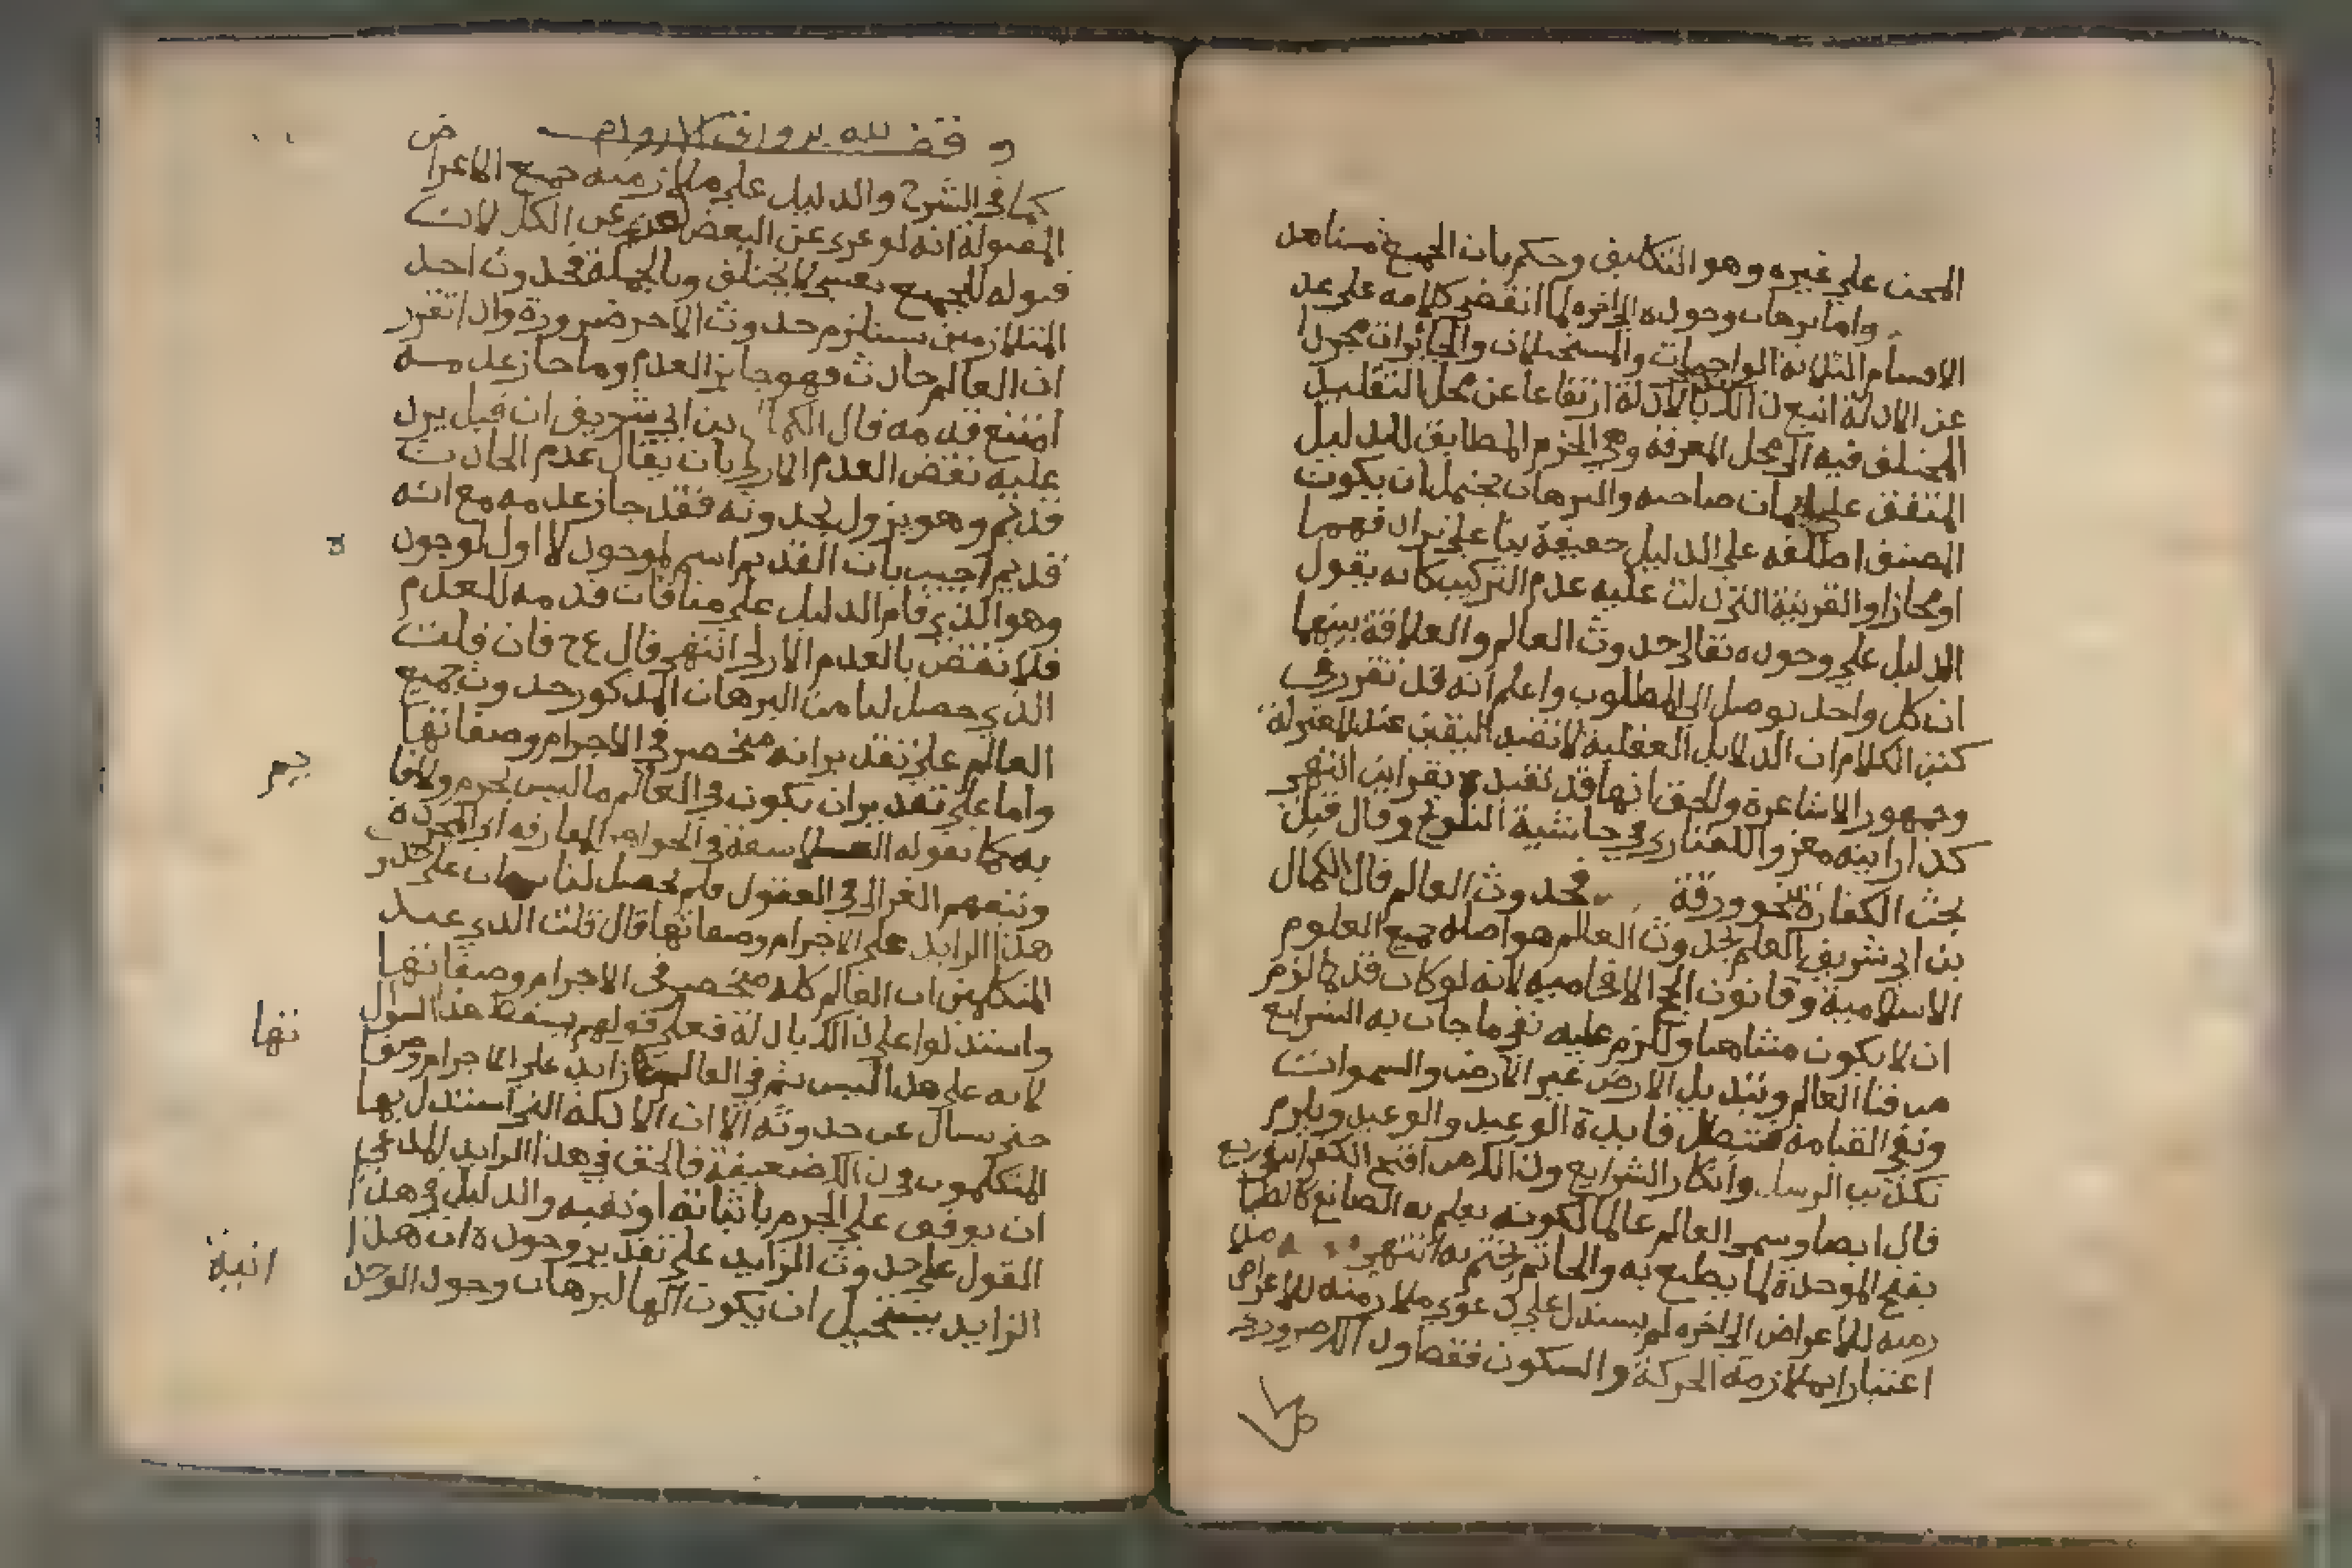 المحن على غيره وهو التكليف وحكم بان الجميع
واما برهان وجوده الى اخره لما انقضى كلامه على عد
الاقسام الثلاثة الواجبات والمستحيلات والجائزات مجردا
عن الادلة اتبع ذلك بالادلة ارتفاعا عن محل التقليد
المختلف فيه الى محل المعرفة وهي الجزم المطابق للدليل
المتفق على ايمان صاحبه والبرهان يحتمل ان يكون
المصنف اطلقه على الدليل حقيقة بنا على ترادفهما
او مجازا والقرينة التي دلت عليه عدم التركيب كانه يقول
الدليل على وجوده تعالى حدوث العالم والعلاقة بينهما
ان كل واحد يوصل الى المطلوب واعلم انه قد تقرر في
كتب الكلام ان الدلايل العقلية لا تفيد اليقين عند المعتزلة
وجمهور الاشاعرة والحق انها قد تفيد بقراين انتهى
كذا رايته معزوا للفناري في حاشية التلويح وقال قبل
بحث الكفارة بنحو ورقة فحدوث العالم قال الكمال
بن ابي شريف العلم بحدوث العالم هو اصل جميع العلوم
الاسلامية وقانون الحج لانه لو كان قديما لزم
ان لا يكون متناهيا ولزم عليه نفي ما جات به الشرايع
من فنا العالم وتبديل الارض غير الارض والسموات
ونفي القيامة فتبطل فايدة الوعيد والوعيد ويلزم
تكذيب الرسل وانكار الشرايع وذلك هو اقبح الكفر
قال ايضا وسمي العالم عالما لكونه يعلم به الصانع كالطابع
بفتح الموحدة لما يطبع به والخاتم لما يختم به انتهى
زمته للاعراض الى اخره لم يستدل على دعوى ملازمته للاعراض
اعتبار ملازمة الحركة والسكون فقط اذ ذلك ضروري
وقف لله برواق الاروام
كما في الشرح والدليل على ملازمته جميع الاعراض
المقبولة انه لو عرى عن البعض لعرى عن الكل لان
قبوله للجميع نفسي لا يختلف وبالجملة فحدوث احد
المتلازمين يستلزم حدوث الاخر ضرورة واذا تقرر
ان العالم حادث فهو جايز العدم وما جاز عدمه
امتنع قدمه قال الكمال بن ابي شريف ان قيل يرد
عليه نقض العدم الازلي بان يقال عدم الحادث
قديم وهو يزول بحدوثه فقد جاز عدمه مع انه
قديم اجيب بان القديم اسم لموجود لا اول لوجوده
وهو الذي قام الدليل على منافات قدمه للعدم
فلا نقض بالعدم الازلي انتهى قال ع ح فان قلت
الذي حصل لنا من البرهان المذكور حدوث جميع
العالم على تقدير انه منحصر في الاجرام وصفاتها
واما على تقدير ان يكون في العالم ما ليس بجرم ولا قايم
به كما تقوله الفلاسفة في الجواهر المفارقة اي المجردة
وتبعهم الغزالي في العقول فلم يحصل لنا برهان على حدو
هذا الزايد على الاجرام وصفاتها قال قلت الذي عند
المتكلمين ان العالم كله منحصر في الاجرام وصفاتها
واستدلوا على ذلك بادلة فعلى قولهم يسقط هذا السوال
لانه على هذا ليس ثم في العالم زايد على الاجرام وصفاتها
حتى يسال عن حدوثه الا ان الادلة التي استدل بها
المتكلمون في ذلك ضعيفة فالحق في هذا الزايد المدعى
ان يوقف على الجزم باثباته او نفيه والدليل في هذا
القول على حدوث الزايد على تقدير وجوده ان هذا
الزايد يستحيل ان يكون الها لبرهان وجود الوحدانية